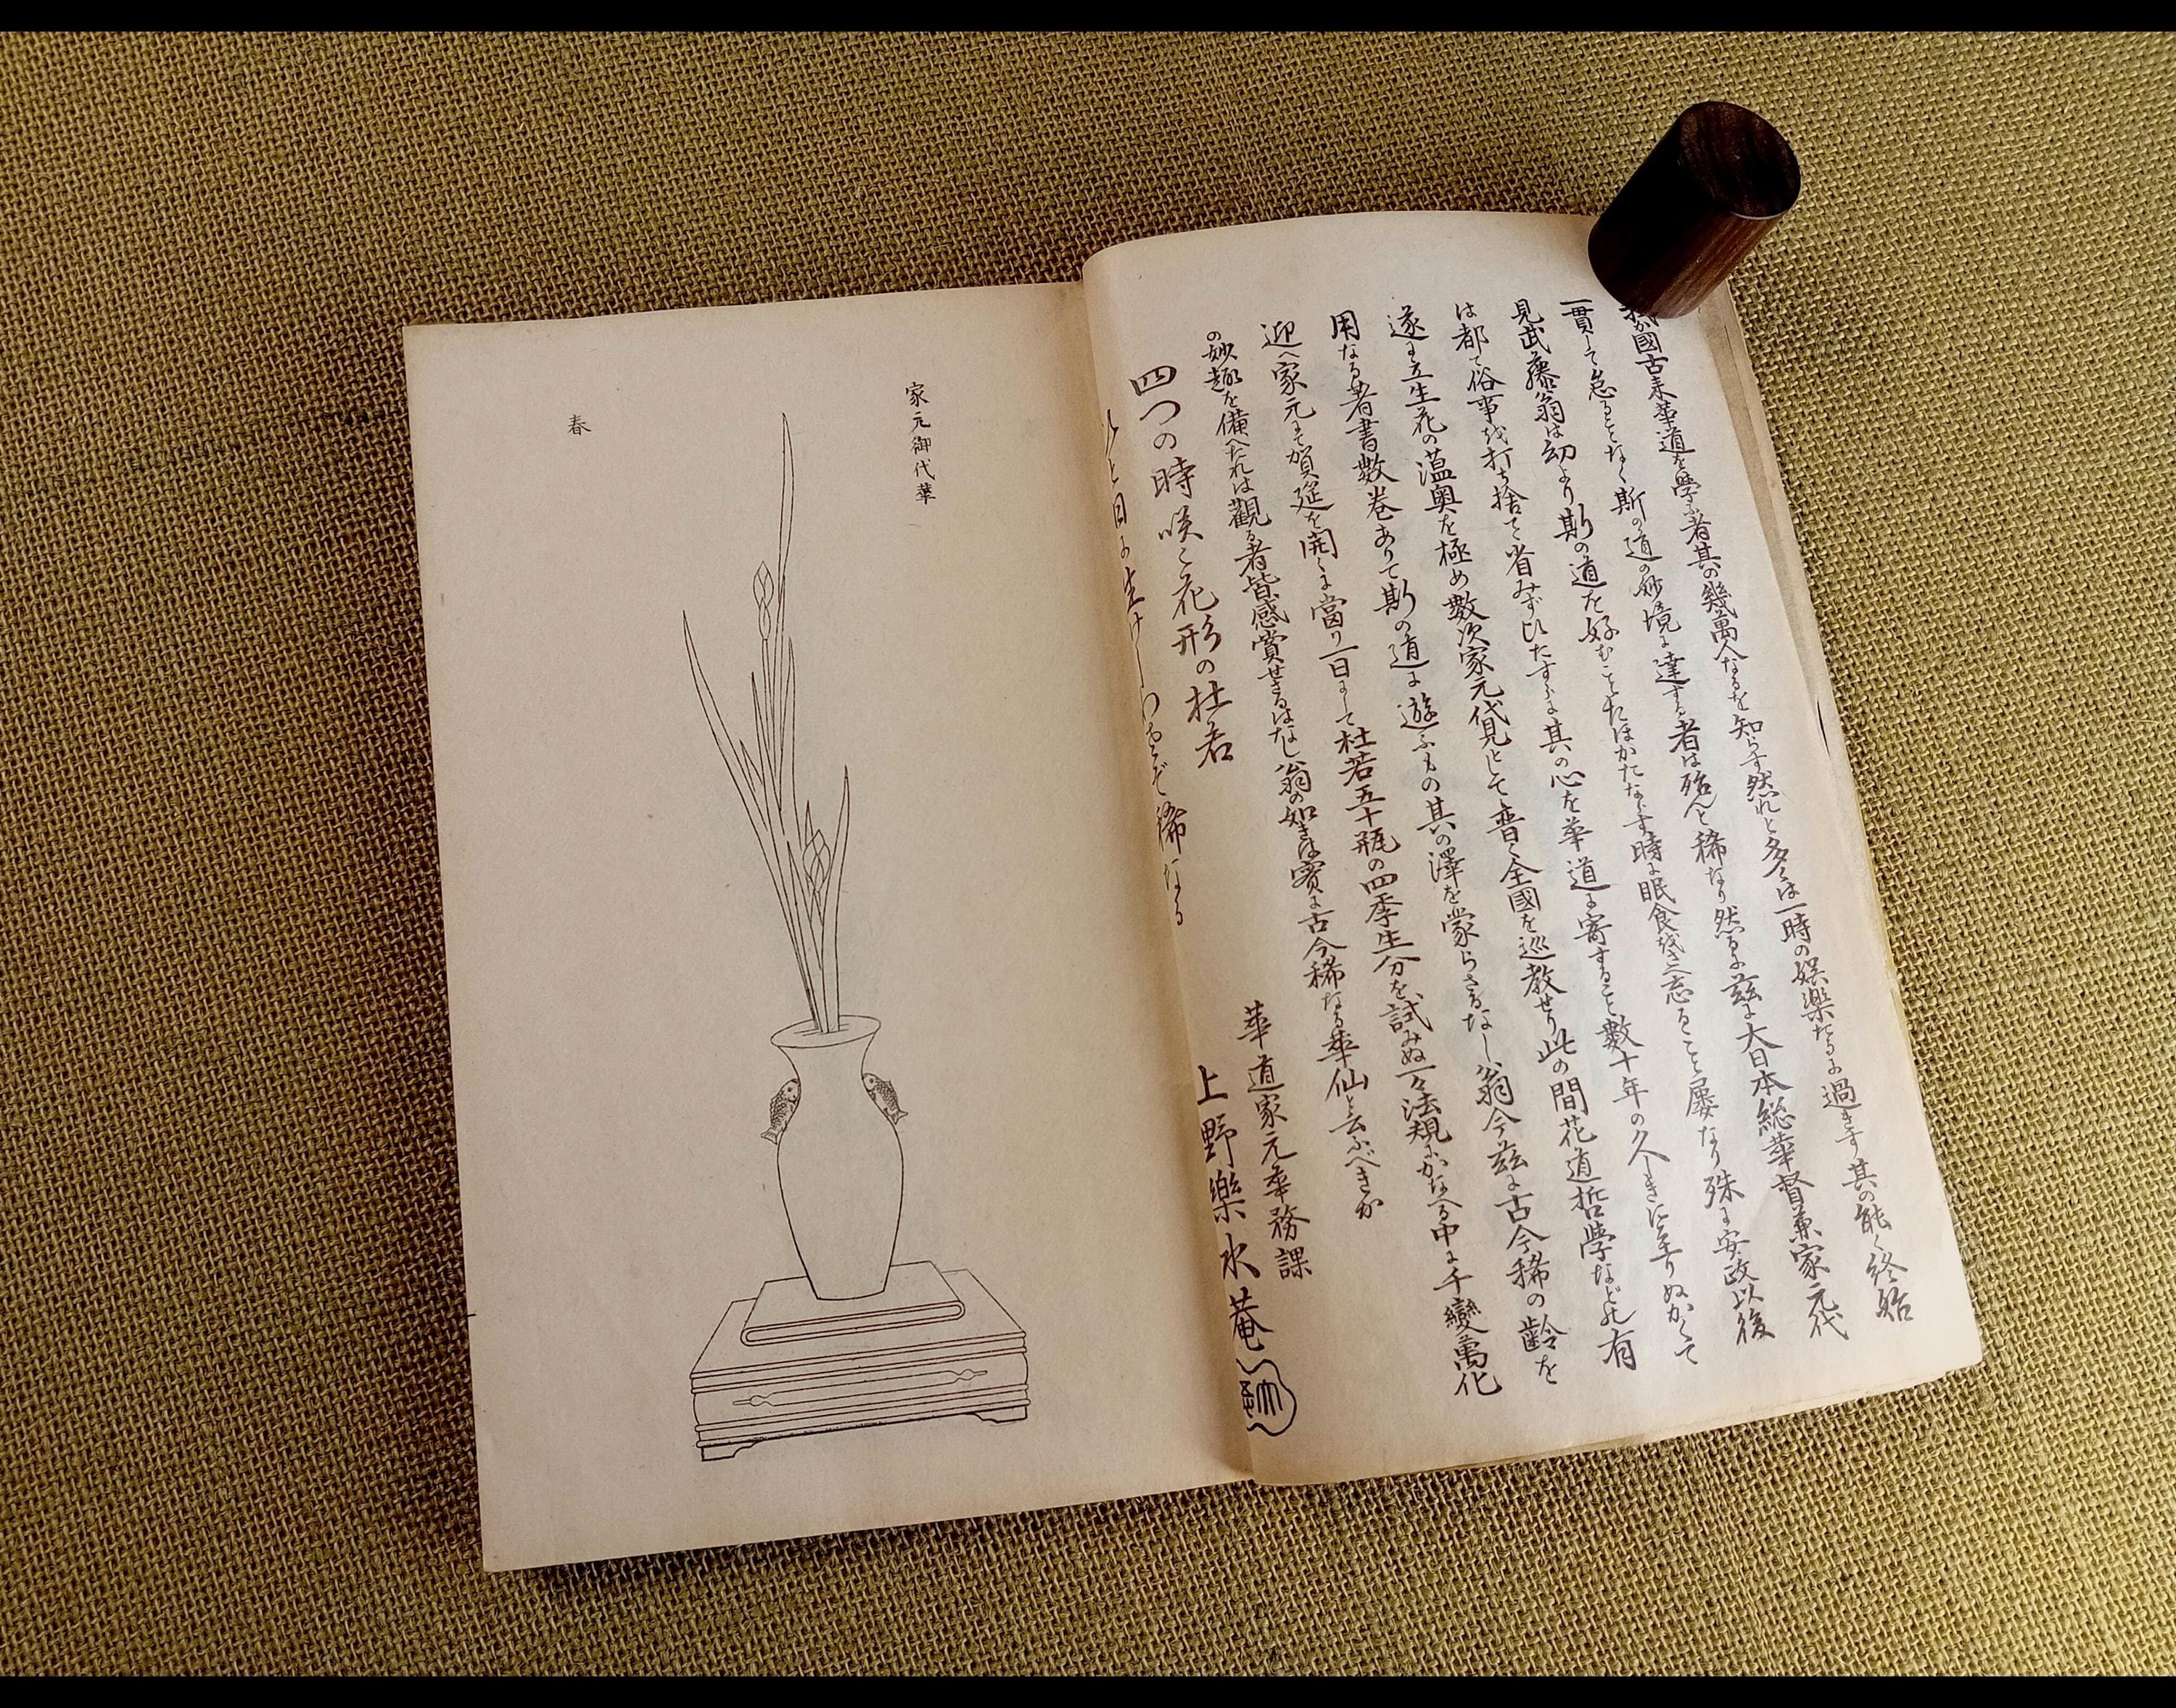 國古来華道を學ふ者其の幾萬人なるを知らす然れと多くは一時の娯楽たるに過きす其の能く終始
一貫して怠ることなく斯の道の妙境に達する者は殆んと稀なり然るに茲に大日本総華督兼家元代
見武藤翁は幼より斯の道を好むことたほかたならす時に眠食越忘ること屡なり殊に安政以後
は都て俗事越打ち捨て省みず以たすらに其の心を華道に寄すること數十年の久しきに至りぬかくて
遂に立生花の薀奥を極め數次家元代見として普く全國を巡教せり此の間花道哲學など有
用なる著書數巻ありて斯の道に遊ふもの其の澤を蒙らさるなし翁今茲に古今稀の齢を
迎へ家元にて賀筵を開くに當り一日にして杜若五十瓶の四季生分を試みぬ一々法規にかなへる中に千變萬化
の妙趣を備へたれは觀る者皆感賞せさるはなし翁の如きは實に古今稀なる華仙と云ふべきか
四つの時咲く花形の杜若
日に生けしわさそ稀なる
華道家元華務課
上野樂水菴
家元御代華
春